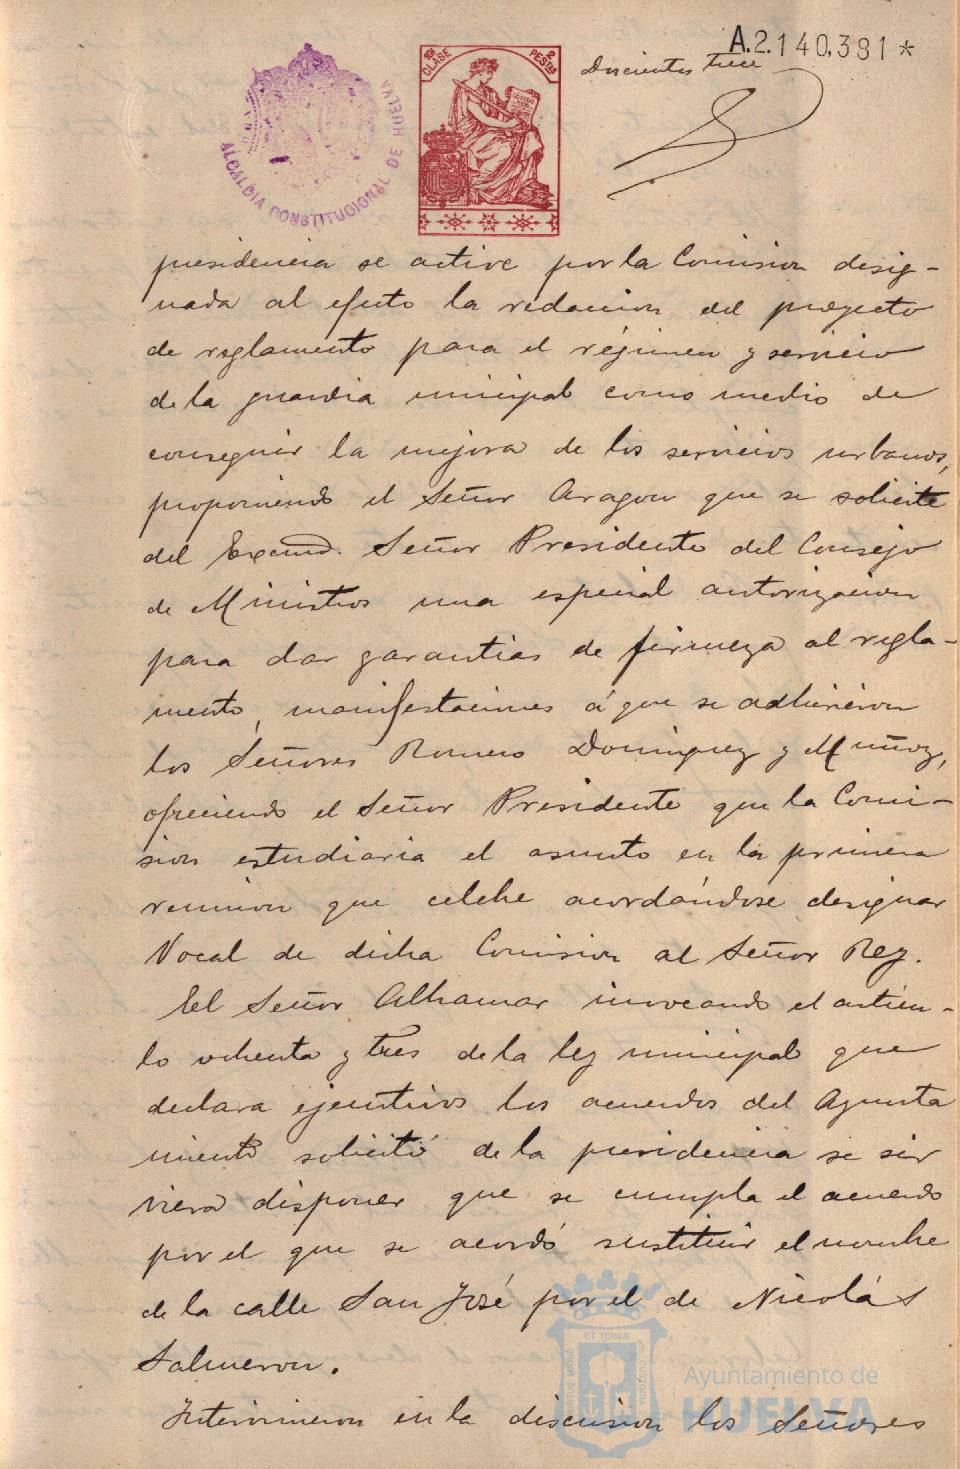 A.2.140,381*
10ª CLASE 2 PESTAS
Doscientos trece
ALCALDIA CONSTITUCIONAL DE HUELVA
presidencia se active por la Comision desig-
nada al efecto la redaccion del proyecto
de reglamento para el régimen y servicio
de la guardia municipal como medio de
conseguir la mejora de los servicios urbanos,
proponiendo el Señor Aragon que se solicite
del Excmo. Señor Presidente del Consejo
de Ministros una especial autorizacion
para dar garantias de firmeza al regla-
mento, manifestaciones á que se adhirieron
los Señores Romero Dominguez y Muñoz,
ofreciendo el Señor Presidente que la Comi-
sion estudiaria el asunto en la primera
reunion que celebre acordándose designar
Vocal de dicha Comision al Señor Rey.
El Señor Alhamar invocando el artícu-
lo ochenta y tres de la ley municipal que
declara ejecutivos los acuerdos del Ayunta
miento solicitó de la presidencia se sir
viera disponer que se cumpla el acuerdo
por el que se acordó sustituir el nombre
de la calle San José por el de Nicolás
Salmeron.
Intervinieron en la discusion los Señores
Ayuntamiento de
HUELVA